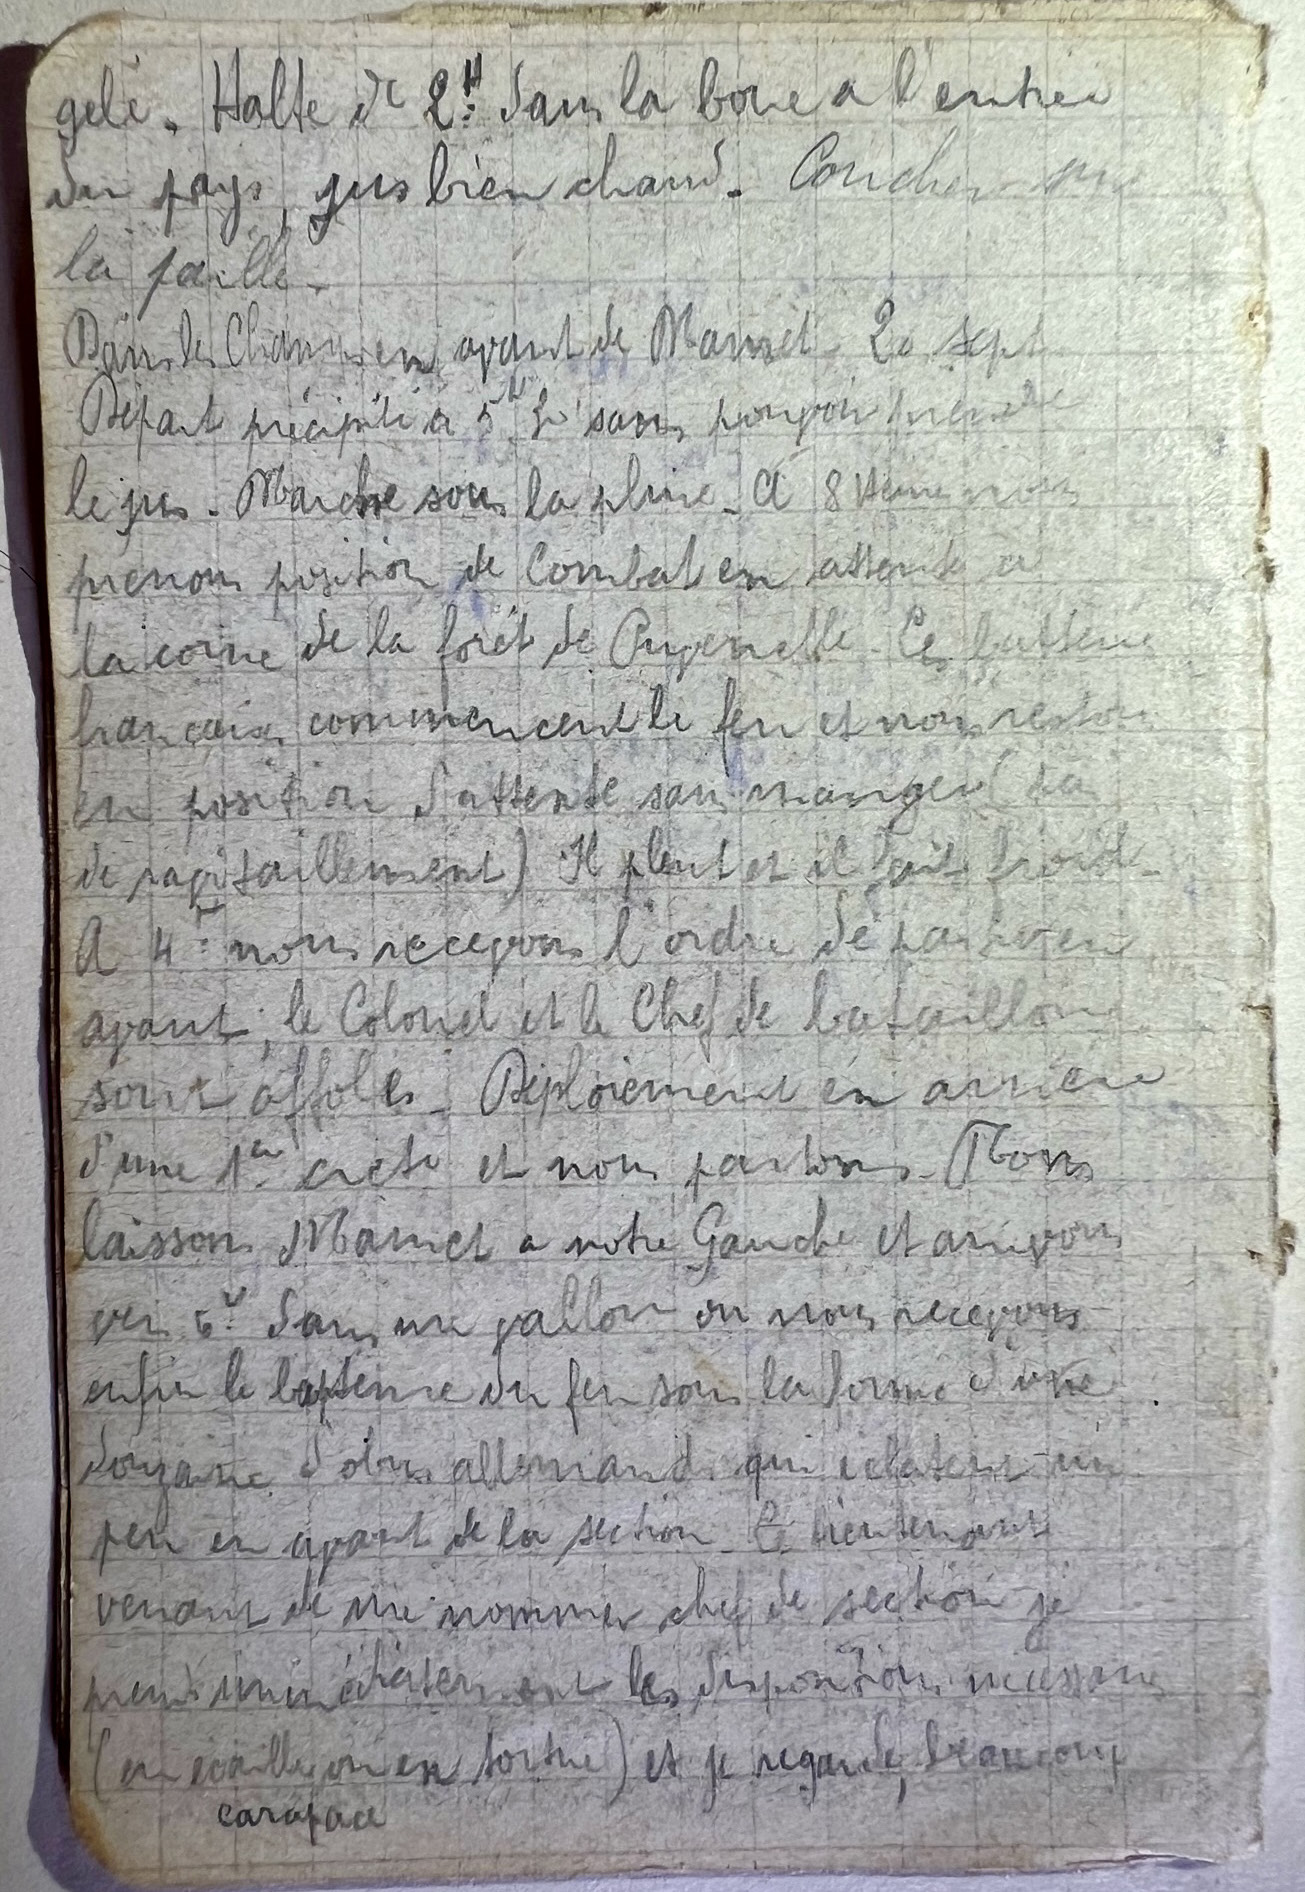 gelé. Halte de 2H dans la boue a l'entrée
du pays, jus bien chaud. Coucher sur
la paille.
Dans les Champs en avant de Mamet 20 Sept
Départ précipité à 5h sans pouvoir prendre
le jus. Marche sous la pluie. A 8 Heures nous
prenons position de Combat en attente a
la corne de la forêt de Les batteries
françaises commencent le feu et nous restons
en position d'attente sans manger (pas
de ravitaillement) Il pleut et il fait froid.
A 4h nous recevons l'ordre de partir en
avant, le Colonel et le Chef de bataillon
sont affolés. Déploiement en arriere
d'une 1ere crete et nous partons. Nous
laissons Mamet a notre Gauche et arrivons
vers 6h dans un vallon ou nous recevons
enfin le baptême du feu sous la forme d'une
douzaine d'obus allemands qui eclatent un
peu en avant de la section. Le lieutenant
venant de me nommer chef de section je
prends immédiatement les dispositions necessaires
(en ecaille ou en tortue) et je regarde, beaucoup
carapace